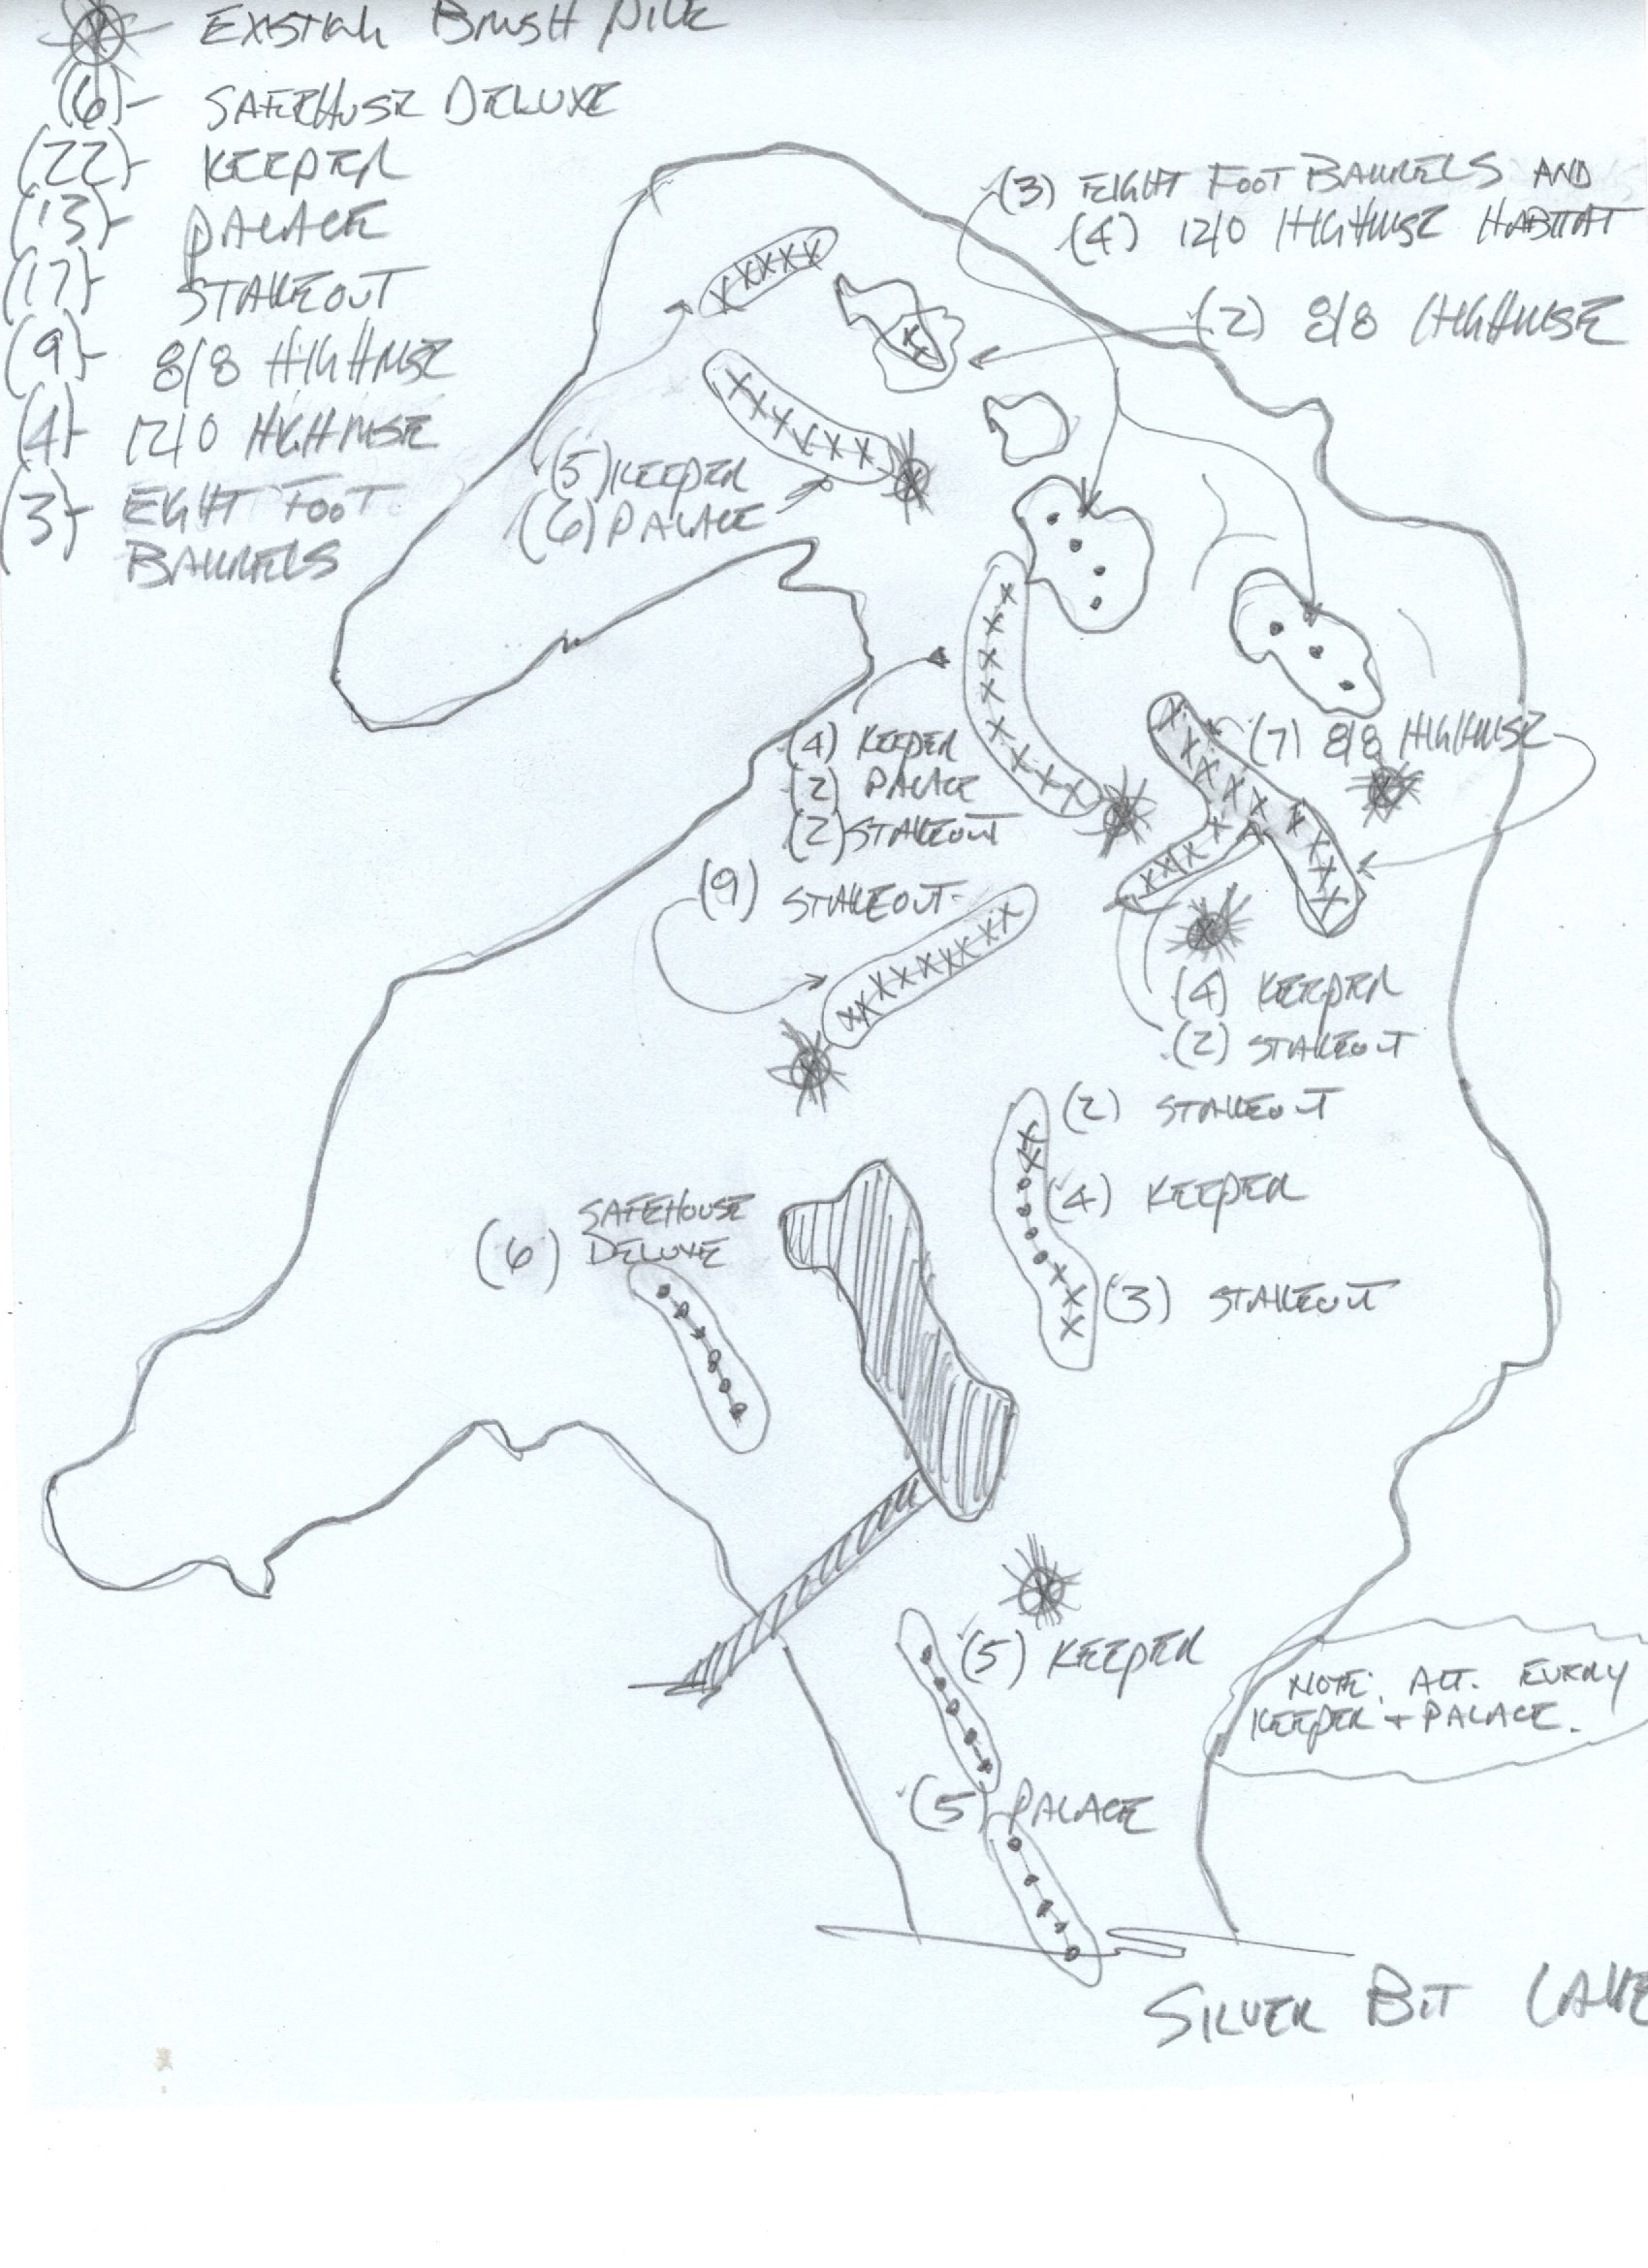 EXISTING BRUSH PILE
(6)- SAFEHOUSE DELUXE
(22)- KEEPER
(13)- PALACE
(17)- STAKEOUT
(9)- 8/8 HIGHRISE
(4)- 12/0 HIGHRISE
(3)- EIGHT FOOT
BARRELS
(3) EIGHT FOOT BARRELS AND
(4) 12/0 HIGHRISE HABITAT
(2) 8/8 HIGHRISE
(5) KEEPER
(6) PALACE
(4) KEEPER
(2) PALACE
(2) STAKEOUT
(7) 8/8 HIGHRISE
(9) STAKEOUT
(4) KEEPER
(2) STAKEOUT
(2) STAKEOUT
(4) KEEPER
(3) STAKEOUT
(6) SAFEHOUSE
DELUXE
(5) KEEPER
(5) PALACE
NOTE: ALT. EVERY
KEEPER + PALACE.
SILVER BIT LAKE